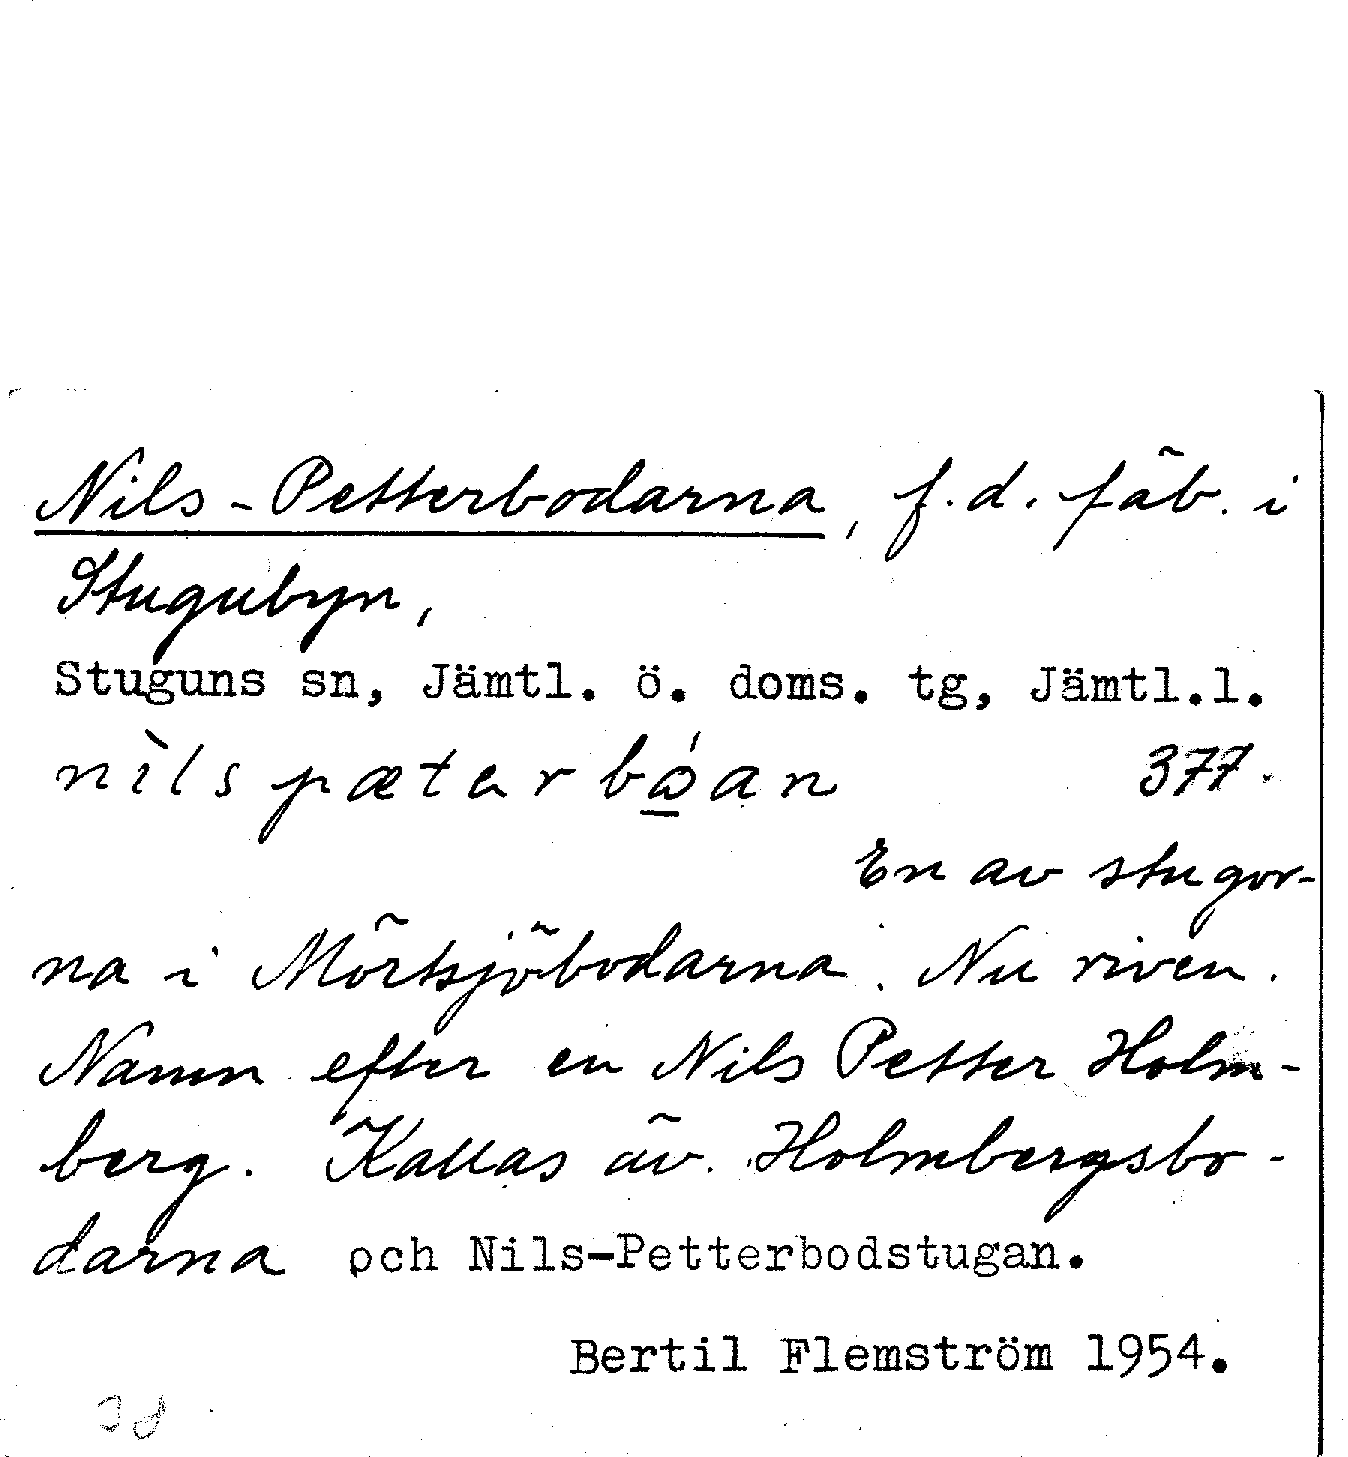 Nils-Petterbodarna, f.d. fäb. i
Stugubyn,
Stuguns sn, Jämtl. ö. doms. tg, Jämtl.l.
nìls pætar bǫ́an 377.
En av stugor-
na i Mörtsjöbodarna. Nu riven.
Namn efter en Nils Petter Holm-
berg. Kallas äv. Holmbergsbo-
darna och Nils-Petterbodstugan.
Bertil Flemström 1954.